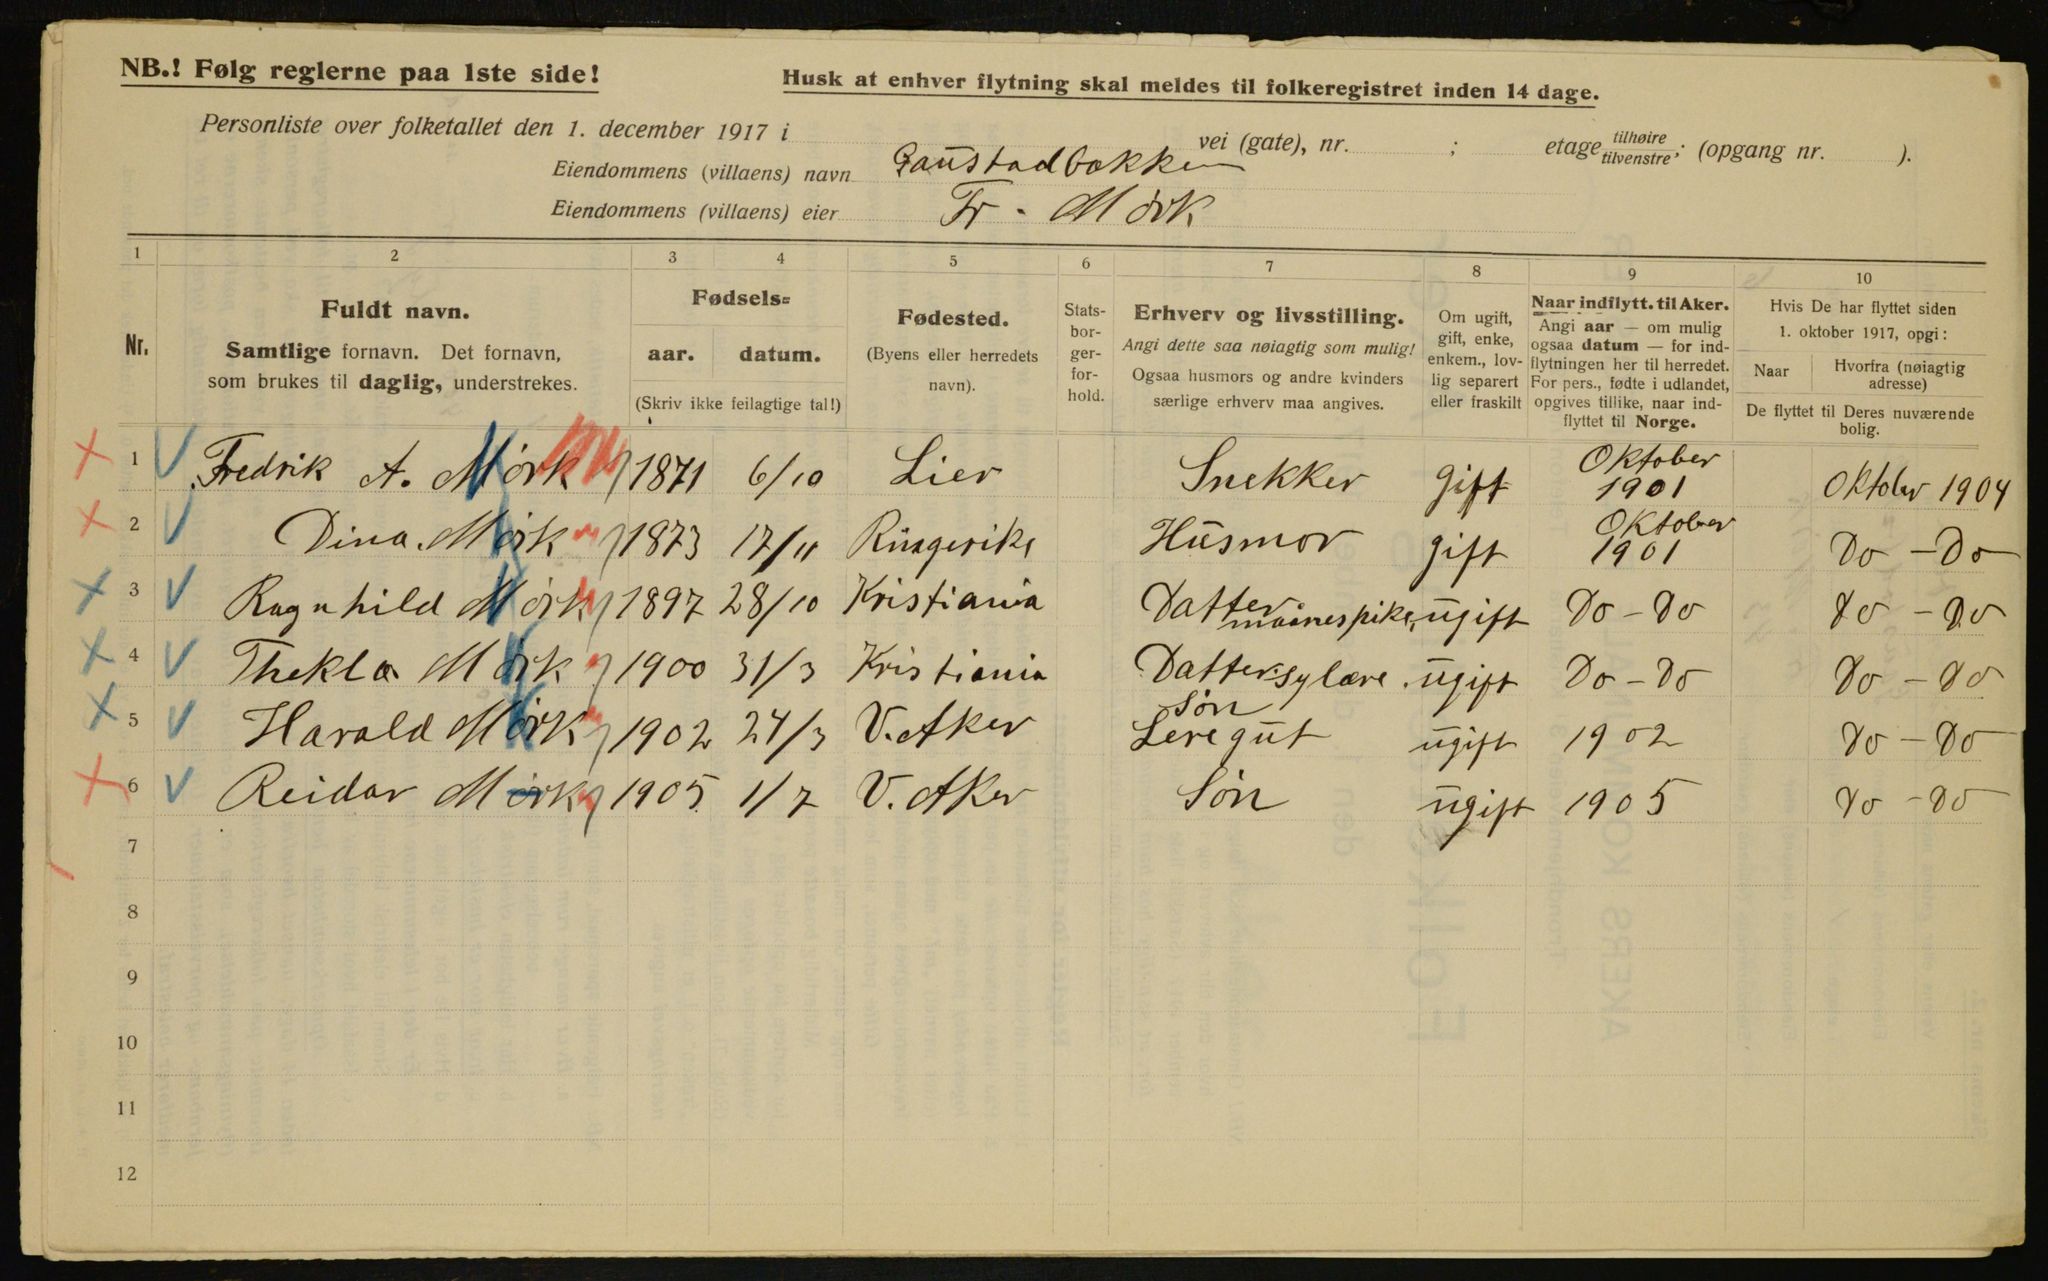 NB.! Følg reglerne paa 1ste side!
Husk at enhver flytning skal meldes til folkeregistret inden 14 dage.
Personliste over folketallet den 1. december 1917 i vei (gate), nr. ; etage tilhøire/tilvenstre; (opgang nr. ).
Eiendommens (villaens) navn Gaustadbakken
Eiendommens (villaens) eier Fr. Mørk
1 2 3 4 5 6 7 8 9 10
Nr.
Fuldt navn.
Samtlige fornavn. Det fornavn,
som brukes til daglig, understrekes.
Fødsels=
aar. datum.
(Skriv ikke feilagtige tal!)
Fødested.
(Byens eller herredets
navn).
Stats-
bor-
ger-
for-
hold.
Erhverv og livsstilling.
Angi dette saa nøiagtig som mulig!
Ogsaa husmors og andre kvinders
særlige erhverv maa angives.
Om ugift,
gift, enke,
enkem., lov-
lig separert
eller fraskilt
Naar indflytt. til Aker.
Angi aar — om mulig
ogsaa datum — for ind-
flytningen her til herredet.
For pers., fødte i utlandet,
opgives tillike, naar ind-
flyttet til Norge.
Hvis De har flyttet siden
1. oktober 1917, opgi:
Naar Hvorfra (nøiagtig
adresse)
De flyttet til Deres nuværende
bolig.
1 Fredrik A. Mørk 1871 6/10 Lier Snekker gift Oktober 1901 Oktober 1904
2 Dina Mørk 1873 17/11 Ringerike Husmor gift Oktober 1901 Do - Do
3 Ragnhild Mørk 1897 28/10 Kristiania Datter ugift Do - Do Do - Do
4 Thekla Mørk 1900 31/3 Kristiania Datter sylære ugift Do - Do Do - Do
5 Harald Mørk 1902 24/3 V. Aker Søn Leregut ugift 1902 Do - Do
6 Reidar Mørk 1905 1/7 V. Aker Søn ugift 1905 Do - Do
7
8
9
10
11
12